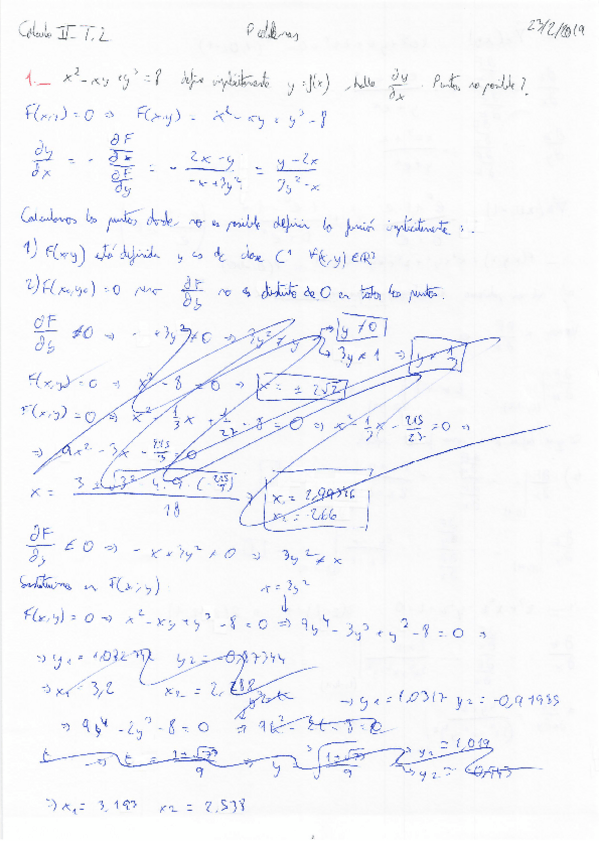 Cálculo II - T.2 Problemas 23/2/2019
1.- x² - xy + y³ = 8 define implícitamente y = f(x), halla ∂y/∂x. Puntos no posible?
F(x,y) = 0 ⇒ F(x,y) = x² - xy + y³ - 8
∂y/∂x = - (∂F/∂x)/(∂F/∂y) = - (2x - y)/(-x + 3y²) = (y - 2x)/(3y² - x)
Calculamos los puntos donde no es posible definir la función implícitamente:
1) F(x,y) está definida y es de clase C¹ ∀(x,y) ∈ ℝ²
2) F(x₀,y₀) = 0 pero ∂F/∂y no es distinto de 0 en todos los puntos.
∂F/∂y ≠ 0 ⇒ - + 3y² ≠ 0 ⇒ 3y² ≠ y ⇒ y ≠ 0
3y ≠ 1 ⇒ y ≠ 1/3
F(x,y) = 0 ⇒ x² - 8 = 0 ⇒ x = ± 2√2
F(x,y) = 0 ⇒ x² - 1/3 x + 1/27 - 8 = 0 ⇒ x² - 1/3 x - 215/27 = 0 ⇒
⇒ 9x² - 3x - 215/3 = 0
x = 18 x₁ = 2,99 x₂ = -2,66
∂F/∂y ≠ 0 ⇒ - x + 3y² ≠ 0 ⇒ 3y² ≠ x
Sustituimos en F(x,y): x = 3y²
F(x,y) = 0 ⇒ x² - xy + y³ - 8 = 0 ⇒ 9y⁴ - 3y³ + y³ - 8 = 0 ⇒
⇒ y₁ = y₂ = -0,87344
⇒ x₁ = 3,2 x₂ = 2,288 ⇒ y₁ = 1,0317 y₂ = -0,91985
⇒ 9y⁴ - 2y³ - 8 = 0 ⇒ 9t² - 2t - 8 = 0
⇒ t = (1 ± √73)/9 ⇒ y = ³√((1 ± √73)/9) ⇒ y₁ = 1,019
⇒ y₂ =
⇒ x₁ = 3,193 x₂ = 2,538